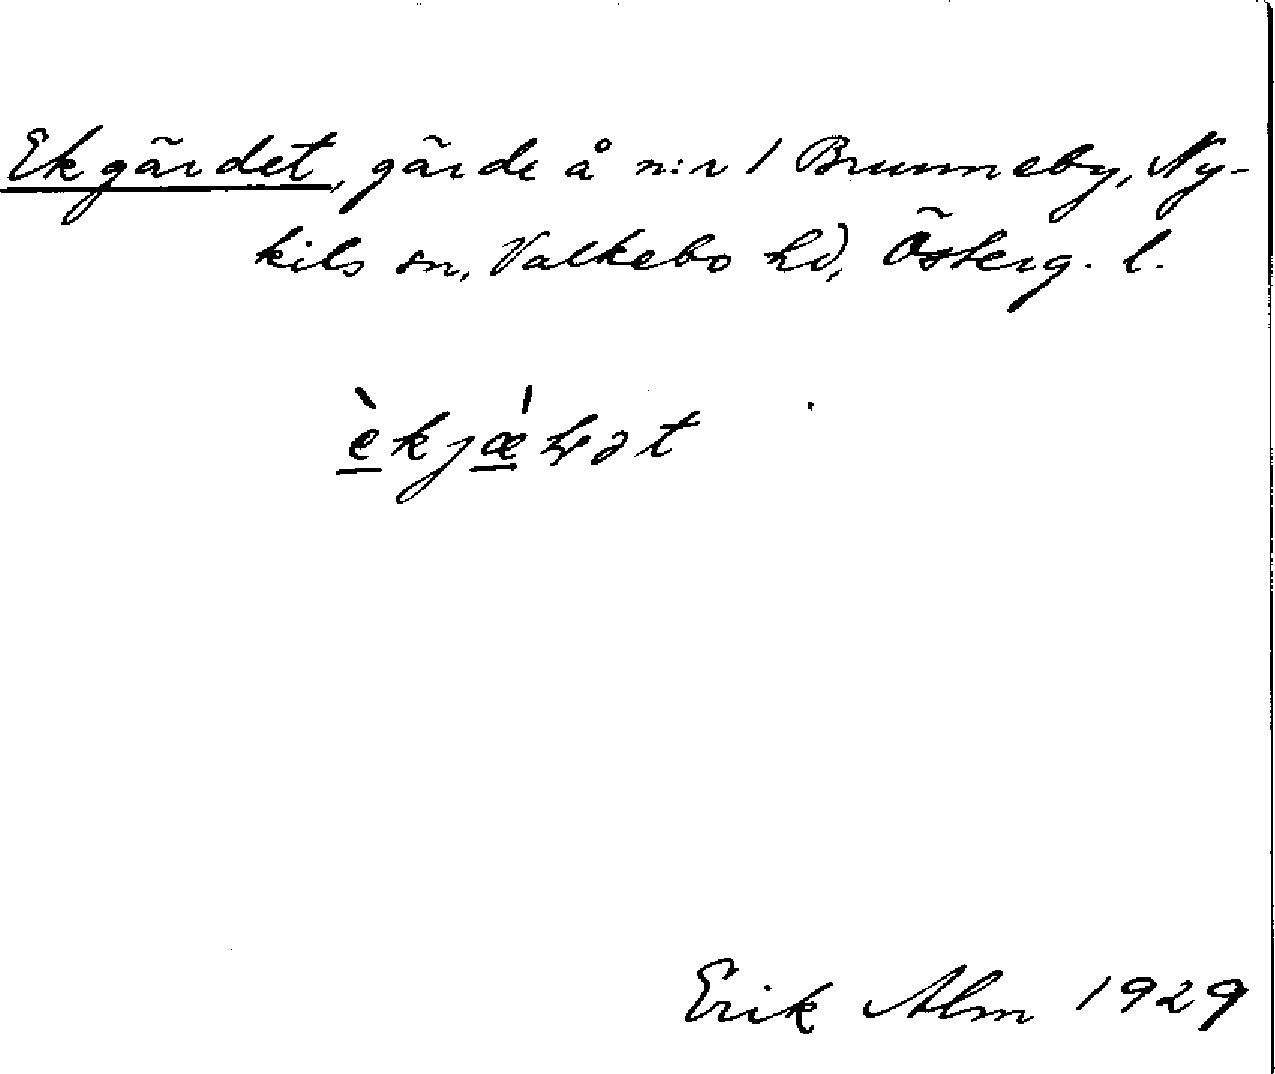 Ekgärdet, gärde å n:r 1 Brunneby, Ny-
kils sn, Valkebo hd, Österg. l.
Erik Alm 1929